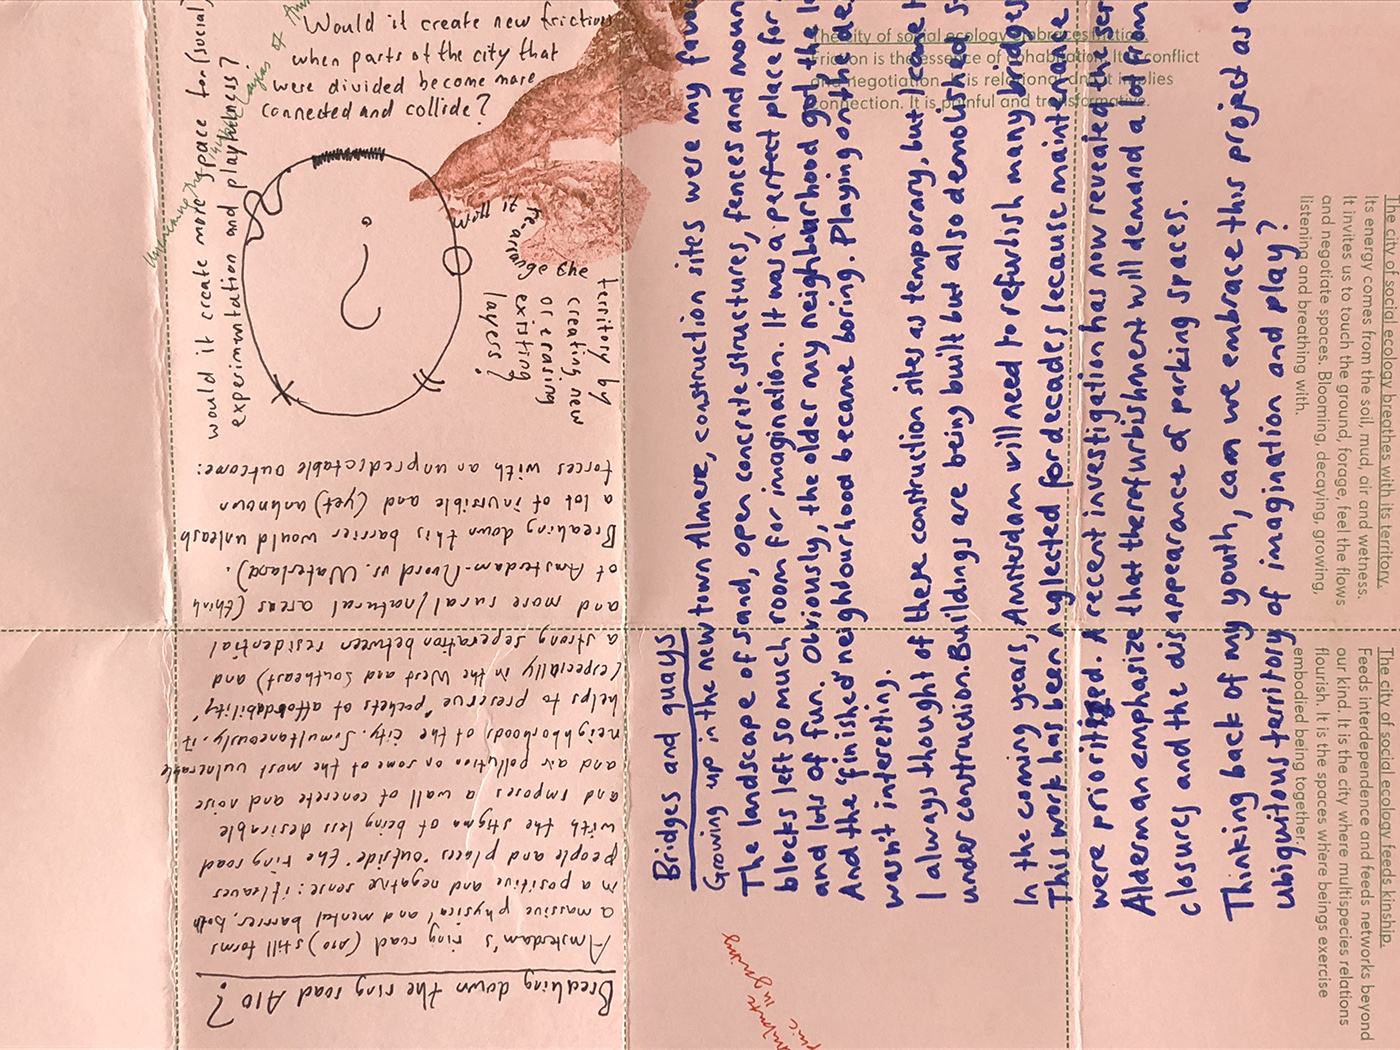 Breaking down the ring road A10?
Amsterdam's ring road (A10) still forms
a massive physical and mental barrier, both
in a positive and negative sense: it leaves
people and places "outside" the ring road
with the stigma of being less desirable
and imposes a wall of concrete and noise
and air pollution on some of the most vulnerable
neighborhoods of the city. Simultaneously, it
helps to preserve "pockets of affordability"
(especially in the West and Southeast) and
a strong seperation between residential
and more rural/natural areas (think
of Amsterdam-Noord vs. Waterland).
Breaking down this barrier would unleash
a lot of invisible and (yet) unknown
forces with an unpredictable outcome:
would it create more space for (social)
experimentation and playfulness?
Would it create new friction
when parts of the city that
were divided become more
connected and collide?
Will it
re-arrange the
territory by
creating new
or erasing
existing
layers?
?
Bridges and quays
Growing up in the new town Almere, construction sites were my favou
The landscape of sand, open concrete structures, fences and moun
blocks left so much room for imagination. It was a perfect place for
and lots of fun. Obviously, the older my neighbourhood got the l
And the 'finished' neighbourhood became boring. Playing on the de
wasn't interesting.
I always thought of these construction sites as temporary, but I came
under construction. Buildings are being built but also demolished
In the coming years, Amsterdam will need to refurbish many bridges
This work has been neglected for decades because maintenance
were prioritized. A recent investigation has now revealed the ser
Alderman emphasize that the refurbishment will demand a lot from
closures and the disappearance of parking spaces.
Thinking back of my youth, can we embrace this project as a
ubiquitous territory of imagination and play?
The city of social ecology embraces friction.
Friction is the essence of cohabitation. It is conflict
and negotiation. It is relational drift. It implies
connection. It is painful and transformative.
The city of social ecology breathes with its territory.
Its energy comes from the soil, mud, air and wetness.
It invites us to touch the ground, forage, feel the flows
and negotiate spaces. Blooming, decaying, growing,
listening and breathing with.
The city of social ecology feeds kinship.
Feeds interdependence and feeds networks beyond
our kind. It is the city where multispecies relations
flourish. It is the spaces where beings exercise
embodied being together.